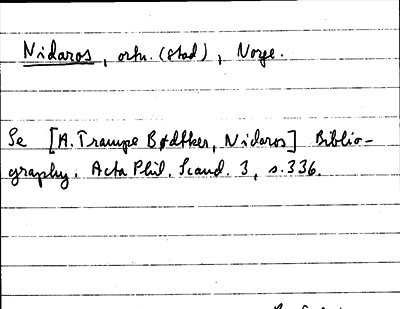 Nidaros, ortn. (stad), Norge.
Se [A. Trampe Bødtker, Nidaros] Biblio-
graphy. Acta Phil. Scand. 3, s. 336.